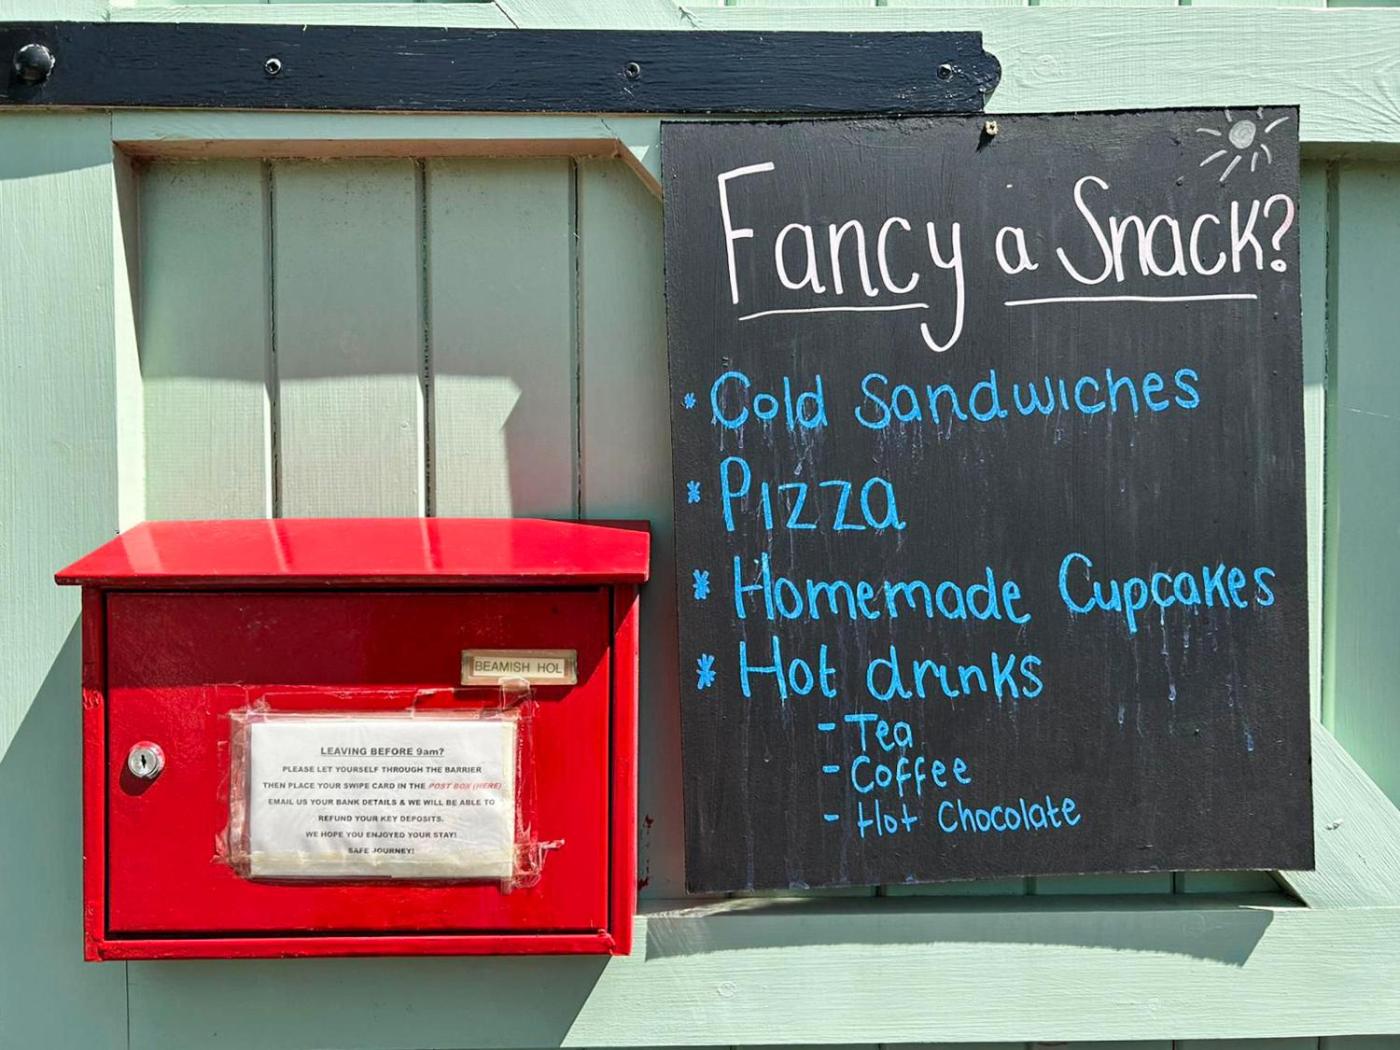 Fancy a Snack?
* Cold Sandwiches
* Pizza
* Homemade Cupcakes
* Hot drinks
- Tea
- Coffee
- Hot Chocolate
BEAMISH HOL
LEAVING BEFORE 9am?
PLEASE LET YOURSELF THROUGH THE BARRIER
THEN PLACE YOUR SWIPE CARD IN THE POST BOX (HERE)
EMAIL US YOUR BANK DETAILS & WE WILL BE ABLE TO
REFUND YOUR KEY DEPOSITS.
WE HOPE YOU ENJOYED YOUR STAY!
SAFE JOURNEY!